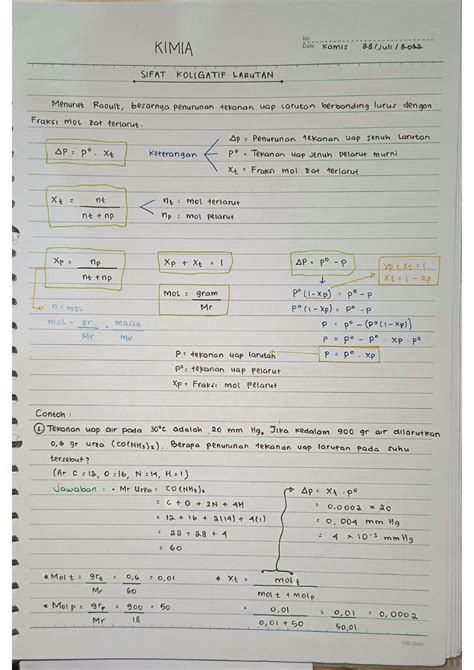 No.
Date Kamis 28/Juli/2022
KIMIA
SIFAT KOLIGATIF LARUTAN
Menurut Raoult, besarnya penurunan tekanan uap larutan berbanding lurus dengan
Fraksi mol zat terlarut.
ΔP = P° . Xt
Keterangan
ΔP = Penurunan tekanan uap jenuh larutan
P° = Tekanan uap jenuh pelarut murni
Xt = Fraksi mol zat terlarut
Xt = nt / nt + np
nt = mol terlarut
np = mol pelarut
Xp = np / nt + np
Xp + Xt = 1
ΔP = P° - P
Xp + Xt = 1
Xt = 1 - Xp
mol = gram / Mr
n = mol
mol = gr / Mr . massa / mv
P° (1 - Xp) = P° - P
P° (1 - Xp) = P° - P
P = P° - (P° (1 - Xp))
P = P° - P° . Xp . P°
P = P° . Xp
P = tekanan uap larutan
P° = tekanan uap pelarut
Xp = Fraksi mol pelarut
Contoh :
1. Tekanan uap air pada 30°C adalah 20 mm Hg. Jika kedalam 900 gr air dilarutkan
0,6 gr urea (CO(NH2)2). Berapa penurunan tekanan uap larutan pada suhu
tersebut?
(Ar C = 12, O = 16, N = 14, H = 1)
Jawaban : • Mr Urea = CO(NH2)2
= C + O + 2N + 4H
= 12 + 16 + 2(14) + 4(1)
= 28 + 28 + 4
= 60
ΔP = Xt . P°
= 0.0002 × 20
= 0,004 mm Hg
= 4 × 10⁻³ mm Hg
* Mol t = grt / Mr = 0,6 / 60 = 0,01
* Mol p = grp / Mr = 900 / 18 = 50
* Xt = mol t / mol t + mol p
= 0.01 / 0,01 + 50 = 0,01 / 50,01 = 0,0002